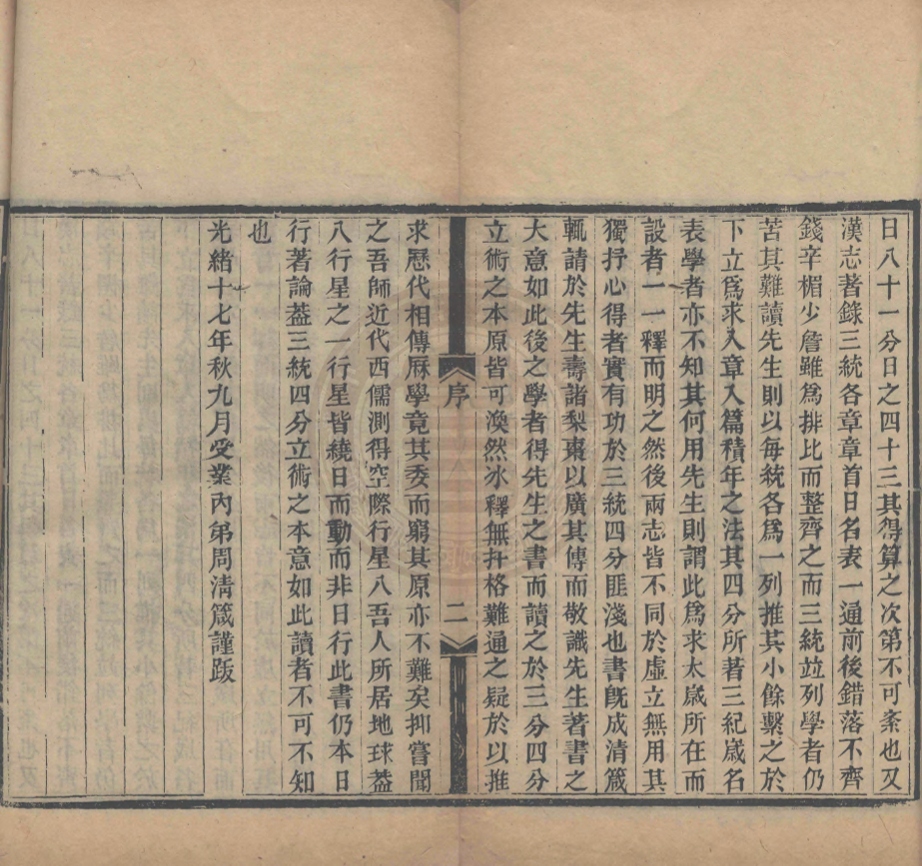 日八十一分日之四十三其得算之次第不可紊也又
漢志著錄三統各章章首日名表一通前後錯落不齊
錢辛楣少詹雖爲排比而整齊之而三統竝列學者仍
苦其難讀先生則以每統各爲一列推其小餘繫之於
下立爲求入章入篇積年之法其四分所著三紀歲名
表學者亦不知其何用先生則謂此爲求太歲所在而
設者一一釋而明之然後兩志皆不同於虛立無用其
獨抒心得者實有功於三統四分匪淺也書旣成清箴
輒請於先生壽諸梨棗以廣其傳而敬識先生著書之
大意如此後之學者得先生之書而讀之於三分四分
立術之本原皆可渙然冰釋無扞格難通之疑於以推
序
二
求歷代相傳厤學竟其委而窮其原亦不難矣抑嘗聞
之吾師近代西儒測得空際行星八吾人所居地球葢
八行星之一行星皆繞日而動而非日行此書仍本日
行著論葢三統四分立術之本意如此讀者不可不知
也
光緒十七年秋九月受業內弟周淸箴謹䟦